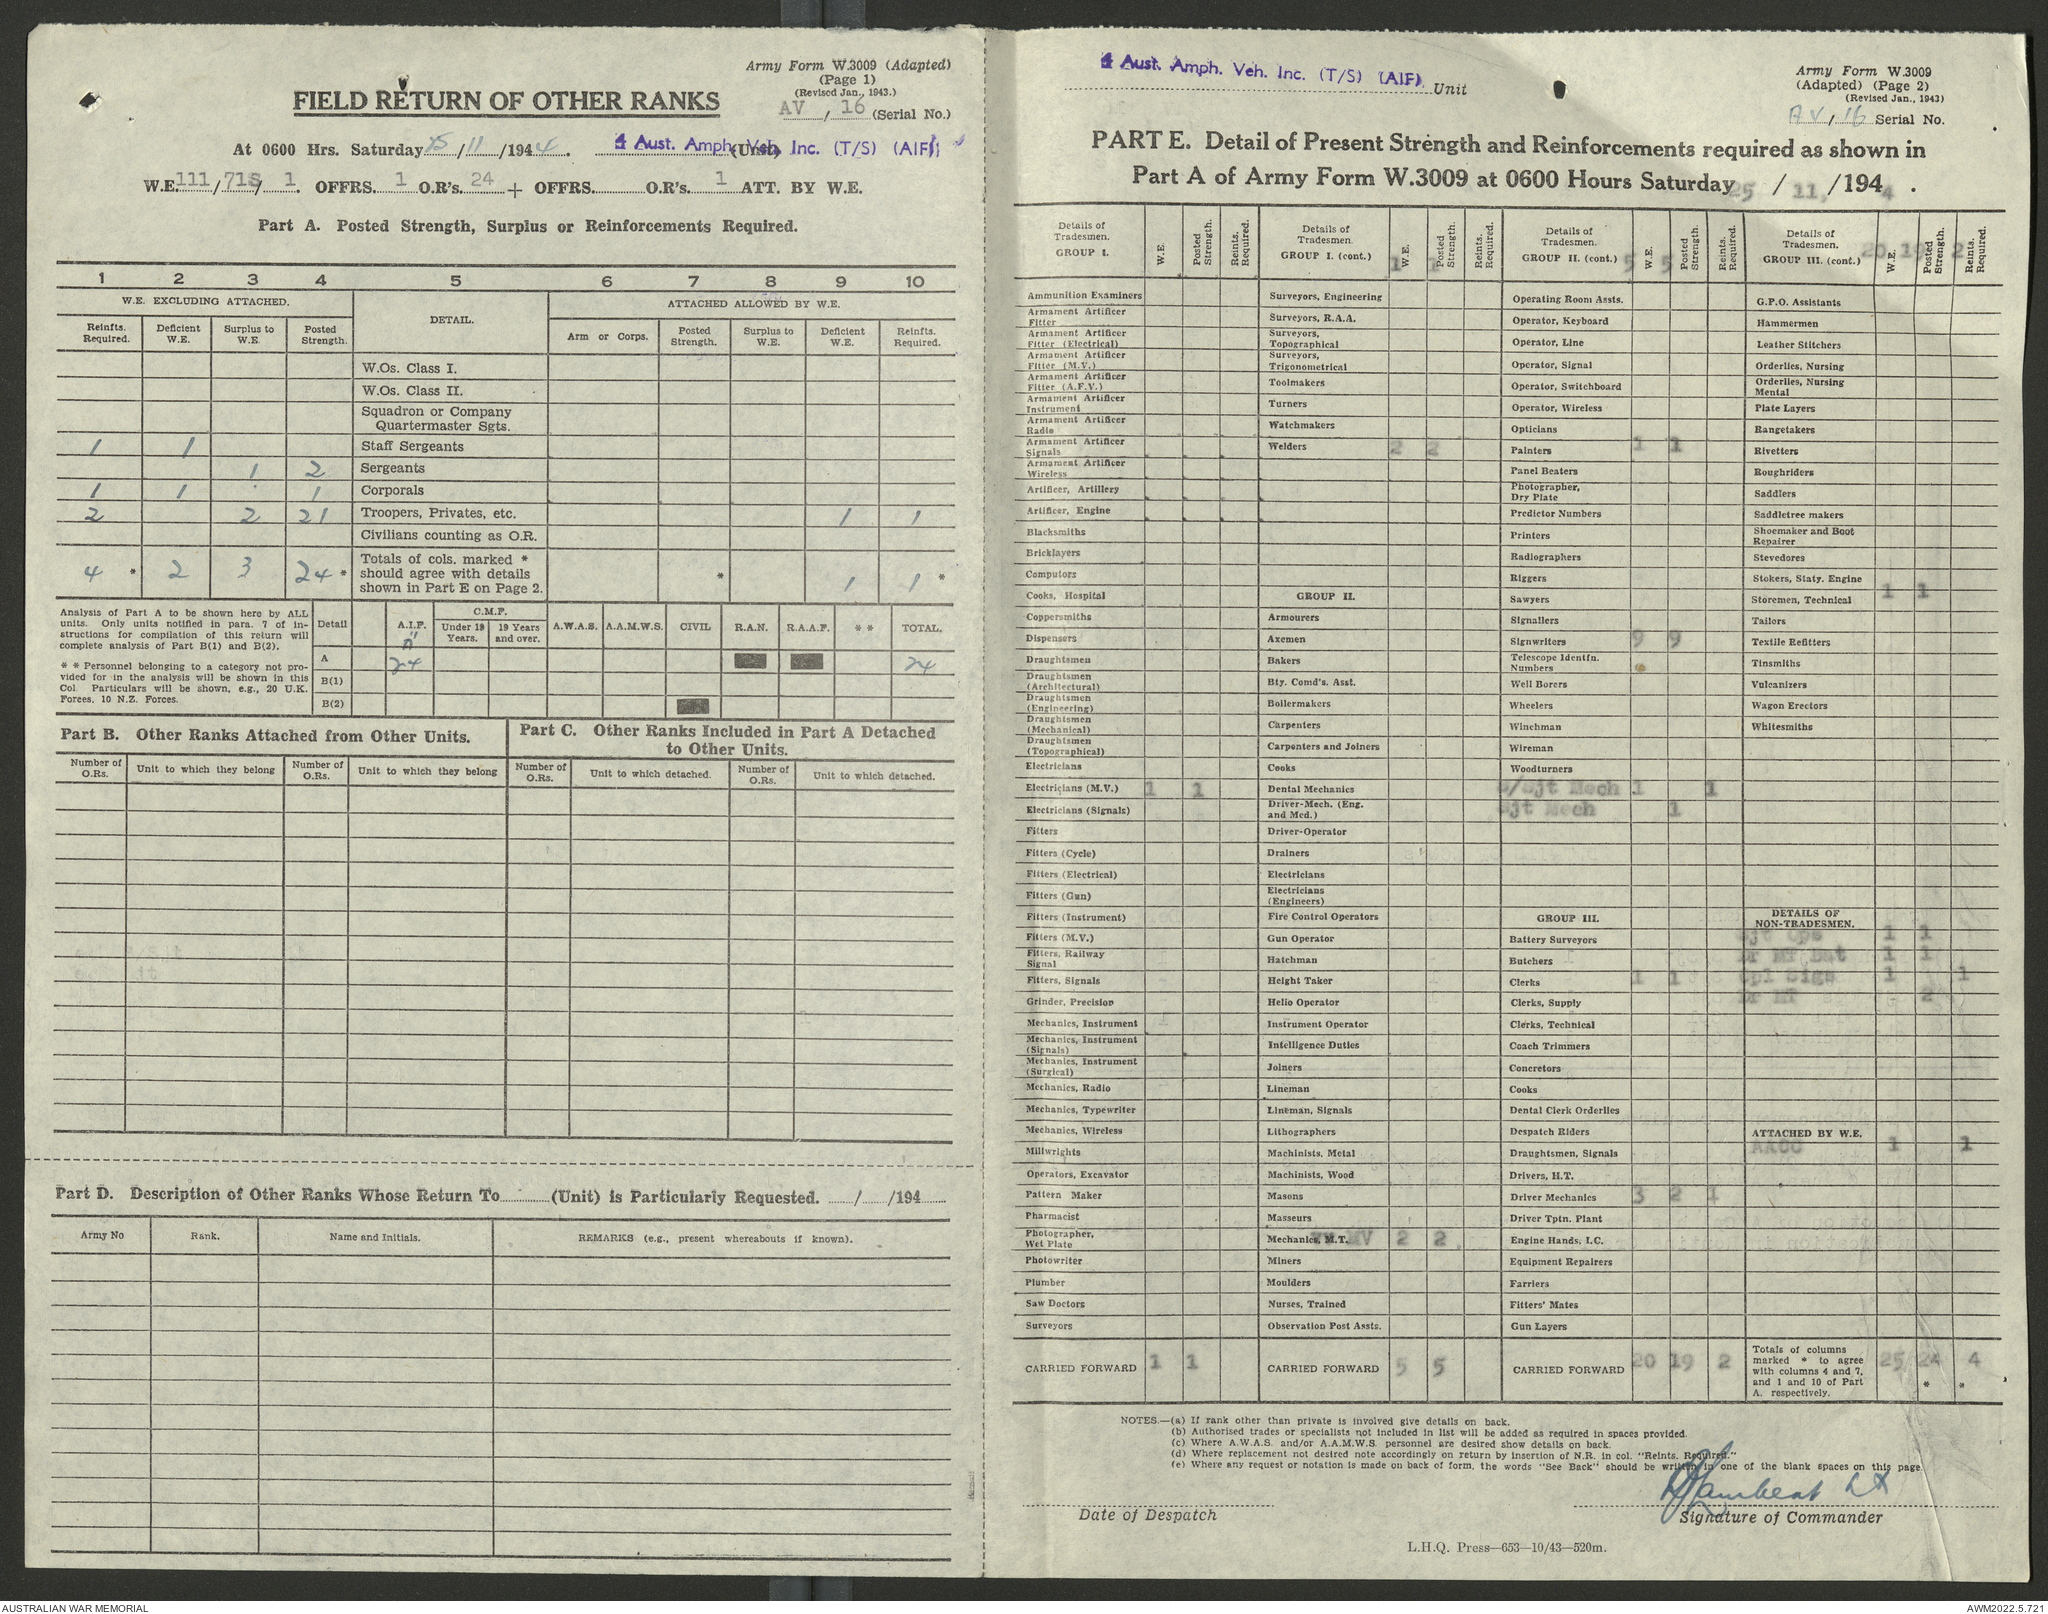 Army Form W.3009 (Adapted)
(Page 1)
(Revised Jan., 1943.)
FIELD RETURN OF OTHER RANKS
AV / 16 (Serial No.)
At 0600 Hrs. Saturday 25/11/1944. 4 Aust. Amph. Veh. Inc. (T/S) (AIF) (Unit)
W.E. 111/71S/1. OFFRS. 1 O.R's. 24 + OFFRS. O.R's. 1 ATT. BY W.E.
Part A. Posted Strength, Surplus or Reinforcements Required.
1 2 3 4 5 6 7 8 9 10
W.E. EXCLUDING ATTACHED. DETAIL. ATTACHED ALLOWED BY W.E.
Reinfts. Required. Deficient W.E. Surplus to W.E. Posted Strength. Arm or Corps. Posted Strength. Surplus to W.E. Deficient W.E. Reinfts. Required.
W.Os. Class I.
W.Os. Class II.
Squadron or Company
Quartermaster Sgts.
1 1 Staff Sergeants
1 2 Sergeants
1 1 1 Corporals
2 2 21 Troopers, Privates, etc. 1 1
Civilians counting as O.R.
4 * 2 3 24 * Totals of cols. marked * should agree with details shown in Part E on Page 2. * 1 1 *
Analysis of Part A to be shown here by ALL
units. Only units notified in para. 7 of in-
structions for compilation of this return will
complete analysis of Part B(1) and B(2).
* * Personnel belonging to a category not pro-
vided for in the analysis will be shown in this
Col. Particulars will be shown, e.g., 20 U.K.
Forces, 10 N.Z. Forces.
Detail A.I.F. C.M.F. Under 19 Years. 19 Years and over. A.W.A.S. A.A.M.W.S. CIVIL R.A.N. R.A.A.F. * * TOTAL.
A 24 24
B(1)
B(2)
Part B. Other Ranks Attached from Other Units.
Part C. Other Ranks Included in Part A Detached
to Other Units.
Number of O.Rs. Unit to which they belong Number of O.Rs. Unit to which they belong Number of O.Rs. Unit to which detached. Number of O.Rs. Unit to which detached.
Part D. Description of Other Ranks Whose Return To (Unit) is Particularly Requested. / /194
Army No Rank. Name and Initials. REMARKS (e.g., present whereabouts if known).
4 Aust. Amph. Veh. Inc. (T/S) (AIF) Unit
Army Form W.3009
(Adapted) (Page 2)
(Revised Jan., 1943)
AV/16 Serial No.
PART E. Detail of Present Strength and Reinforcements required as shown in
Part A of Army Form W.3009 at 0600 Hours Saturday 25 / 11, /1944.
Details of Tradesmen. GROUP I. W.E. Posted Strength. Reints. Required.
Ammunition Examiners
Armament Artificer Fitter
Armament Artificer Fitter (Electrical)
Armament Artificer Fitter (M.V.)
Armament Artificer Fitter (A.F.V.)
Armament Artificer Instrument
Armament Artificer Radio
Armament Artificer Signals
Armament Artificer Wireless
Artificer, Artillery
Artificer, Engine
Blacksmiths
Bricklayers
Computors
Cooks, Hospital
Coppersmiths
Dispensers
Draughtsmen
Draughtsmen (Architectural)
Draughtsmen (Engineering)
Draughtsmen (Mechanical)
Draughtsmen (Topographical)
Electricians
Electricians (M.V.) 1 1
Electricians (Signals)
Fitters
Fitters (Cycle)
Fitters (Electrical)
Fitters (Gun)
Fitters (Instrument)
Fitters (M.V.)
Fitters, Railway Signal
Fitters, Signals
Grinder, Precision
Mechanics, Instrument
Mechanics, Instrument (Signals)
Mechanics, Instrument (Surgical)
Mechanics, Radio
Mechanics, Typewriter
Mechanics, Wireless
Millwrights
Operators, Excavator
Pattern Maker
Pharmacist
Photographer, Wet Plate
Photowriter
Plumber
Saw Doctors
Surveyors
CARRIED FORWARD 1 1
Details of Tradesmen. GROUP I. (cont.) W.E. Posted Strength. Reints. Required.
1 1
Surveyors, Engineering
Surveyors, R.A.A.
Surveyors, Topographical
Surveyors, Trigonometrical
Toolmakers
Turners
Watchmakers
Welders 2 2
GROUP II.
Armourers
Axemen
Bakers
Bty. Comd's. Asst.
Boilermakers
Carpenters
Carpenters and Joiners
Cooks
Dental Mechanics
Driver-Mech. (Eng. and Med.)
Driver-Operator
Drainers
Electricians
Electricians (Engineers)
Fire Control Operators
Gun Operator
Hatchman
Height Taker
Helio Operator
Instrument Operator
Intelligence Duties
Joiners
Lineman
Lineman, Signals
Lithographers
Machinists, Metal
Machinists, Wood
Masons
Masseurs
Mechanics, M.T. MV 2 2
Miners
Moulders
Nurses, Trained
Observation Post Assts.
CARRIED FORWARD 5 5
Details of Tradesmen. GROUP II. (cont.) W.E. Posted Strength. Reints. Required.
5 5
Operating Room Assts.
Operator, Keyboard
Operator, Line
Operator, Signal
Operator, Switchboard
Operator, Wireless
Opticians
Painters 1 1
Panel Beaters
Photographer, Dry Plate
Predictor Numbers
Printers
Radiographers
Riggers
Sawyers
Signallers
Signwriters 9 9
Telescope Identfn. Numbers
Well Borers
Wheelers
Winchman
Wireman
Woodturners
S/Sjt Mech 1 1
Sjt Mech 1
GROUP III.
Battery Surveyors
Butchers
Clerks 1 1
Clerks, Supply
Clerks, Technical
Coach Trimmers
Concretors
Cooks
Dental Clerk Orderlies
Despatch Riders
Draughtsmen, Signals
Drivers, H.T.
Driver Mechanics 3 2 1
Driver Tptn. Plant
Engine Hands, I.C.
Equipment Repairers
Farriers
Fitters' Mates
Gun Layers
CARRIED FORWARD 20 19 2
Details of Tradesmen. GROUP III. (cont.) W.E. Posted Strength. Reints. Required.
20 19 2
G.P.O. Assistants
Hammermen
Leather Stitchers
Orderlies, Nursing
Orderlies, Nursing Mental
Plate Layers
Rangetakers
Rivetters
Roughriders
Saddlers
Saddletree makers
Shoemaker and Boot Repairer
Stevedores
Stokers, Staty. Engine
Storemen, Technical 1 1
Tailors
Textile Refitters
Tinsmiths
Vulcanizers
Wagon Erectors
Whitesmiths
DETAILS OF NON-TRADESMEN.
Sjt Ops 1 1
Dr MT Bat 1 1
Cpl Sigs 1 1
Dr MT - 2
ATTACHED BY W.E.
AACC 1 1
Totals of columns marked * to agree with columns 4 and 7, and 1 and 10 of Part A. respectively. 25 24 * 4 *
NOTES.—(a) If rank other than private is involved give details on back.
(b) Authorised trades or specialists not included in list will be added as required in spaces provided.
(c) Where A.W.A.S. and/or A.A.M.W.S. personnel are desired show details on back.
(d) Where replacement not desired note accordingly on return by insertion of N.R. in col. "Reints. Required."
(e) Where any request or notation is made on back of form, the words "See Back" should be written in one of the blank spaces on this page.
Lambert Lt
Date of Despatch
Signature of Commander
L.H.Q. Press—653—10/43—520m.
AUSTRALIAN WAR MEMORIAL
AWM2022.5.721